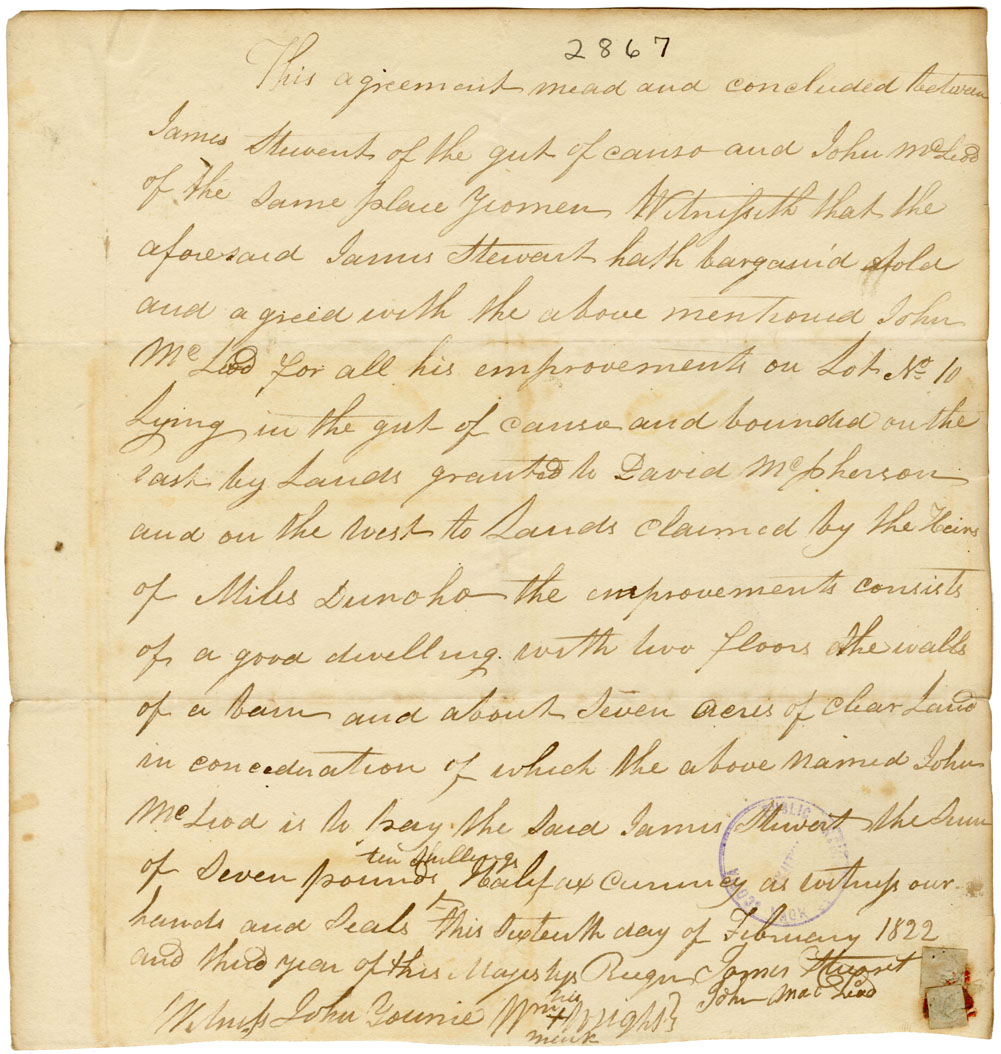 2867
This agreement mead and concluded between
James Stewert of the gut of canso and John McLeod
of the same place Yiomen Witnesseth that the
aforesaid James Stewart hath bargain'd & sold
and agreed with the above mentioned John
McLeod for all his emprovements on Lot No 10
Lying in the gut of canso and bounded on the
east by Lands granted to David McPherson
and on the West to Lands claimed by the Heirs
of Miles Dunoho the improvements consists
of a good dwelling with two floors & the walls
of a barn and about seven acres of Clear Land
in concederation of which the above named John
McLeod is to pay the said James Stewart the Sum
ten shillings
of Seven pounds Halifax Currincy as witness our
hands and Seals this Sixteenth day of February 1822
and third year of this Majestys Reign James Stewart
John Mac Leod
Witness John Younie Wm his + mark Wright
PUBLIC NOVA SCOTIA